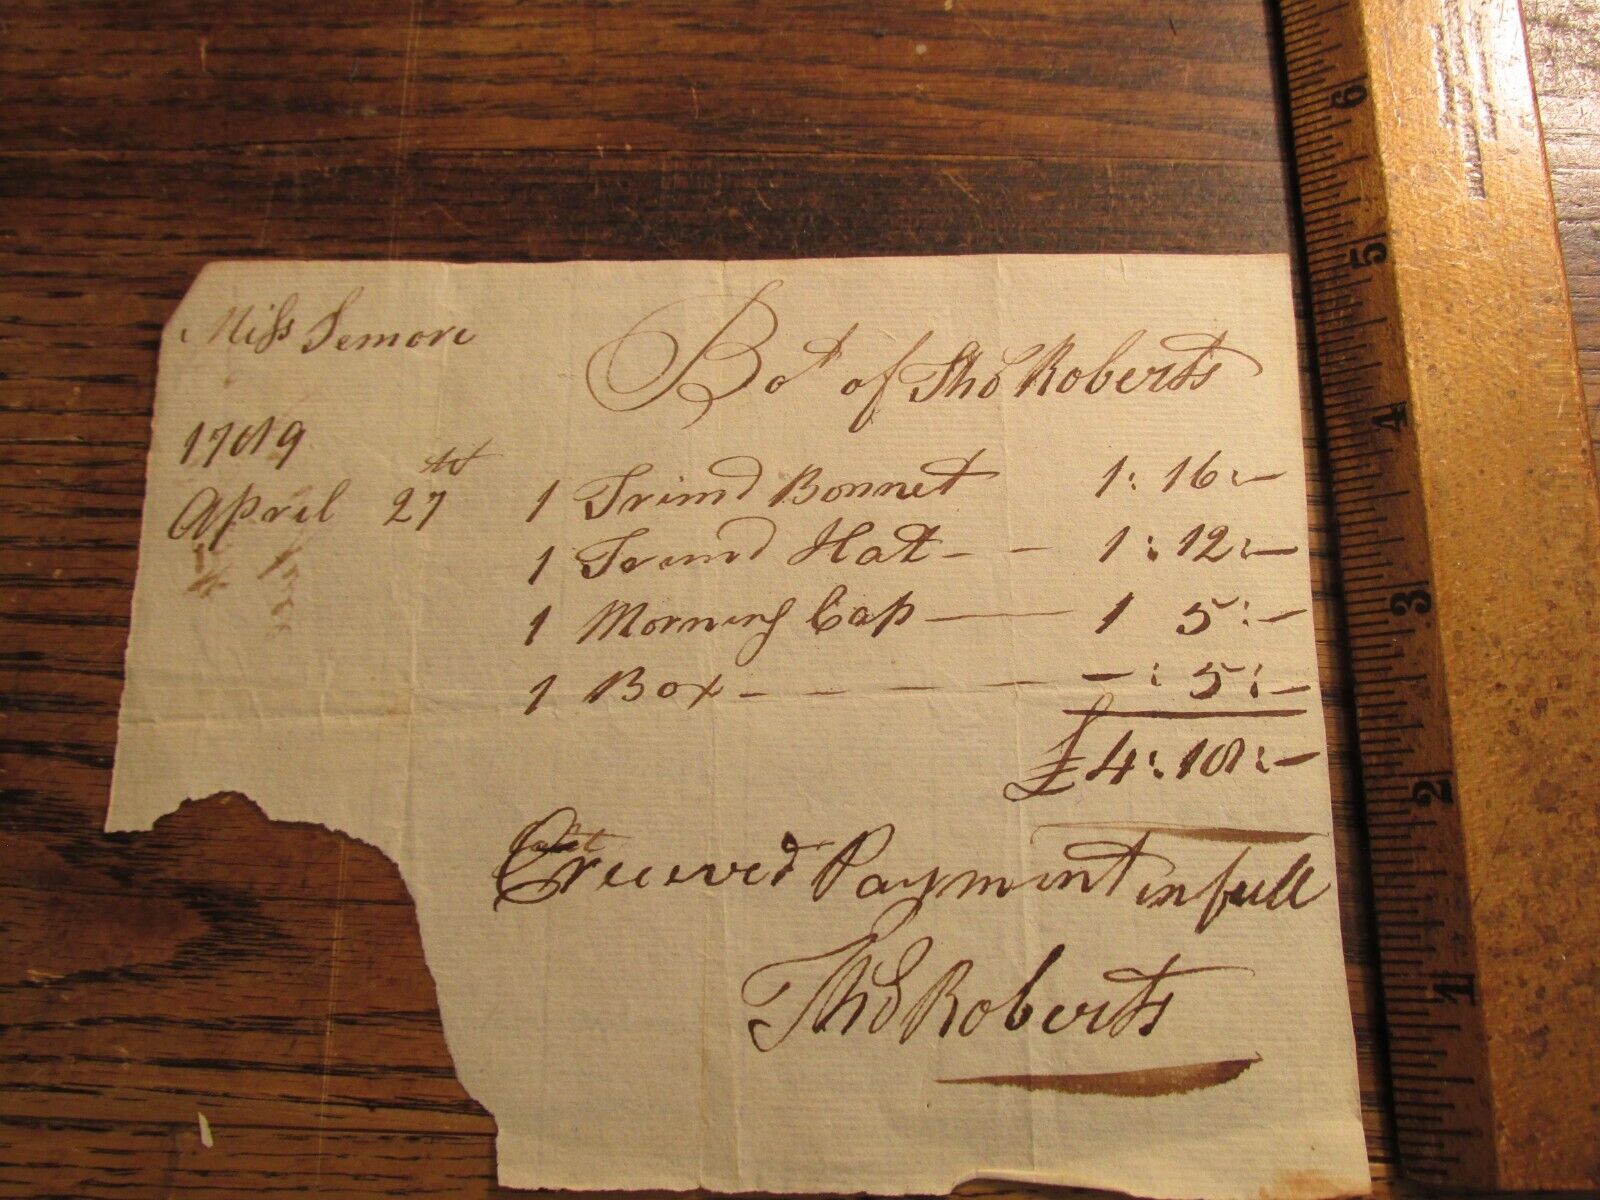 Miss Semore
Bot of Thos Roberts
1789
April 27th 1 Trimd Bonnet 1:16:-
1 Trimd Hat - - 1:12:-
1 Morning Cap - 1 5:-
1 Box - - - - -:5:-
£4:18:-
received Payment in full
Thos Roberts
6
5
4
3
2
1